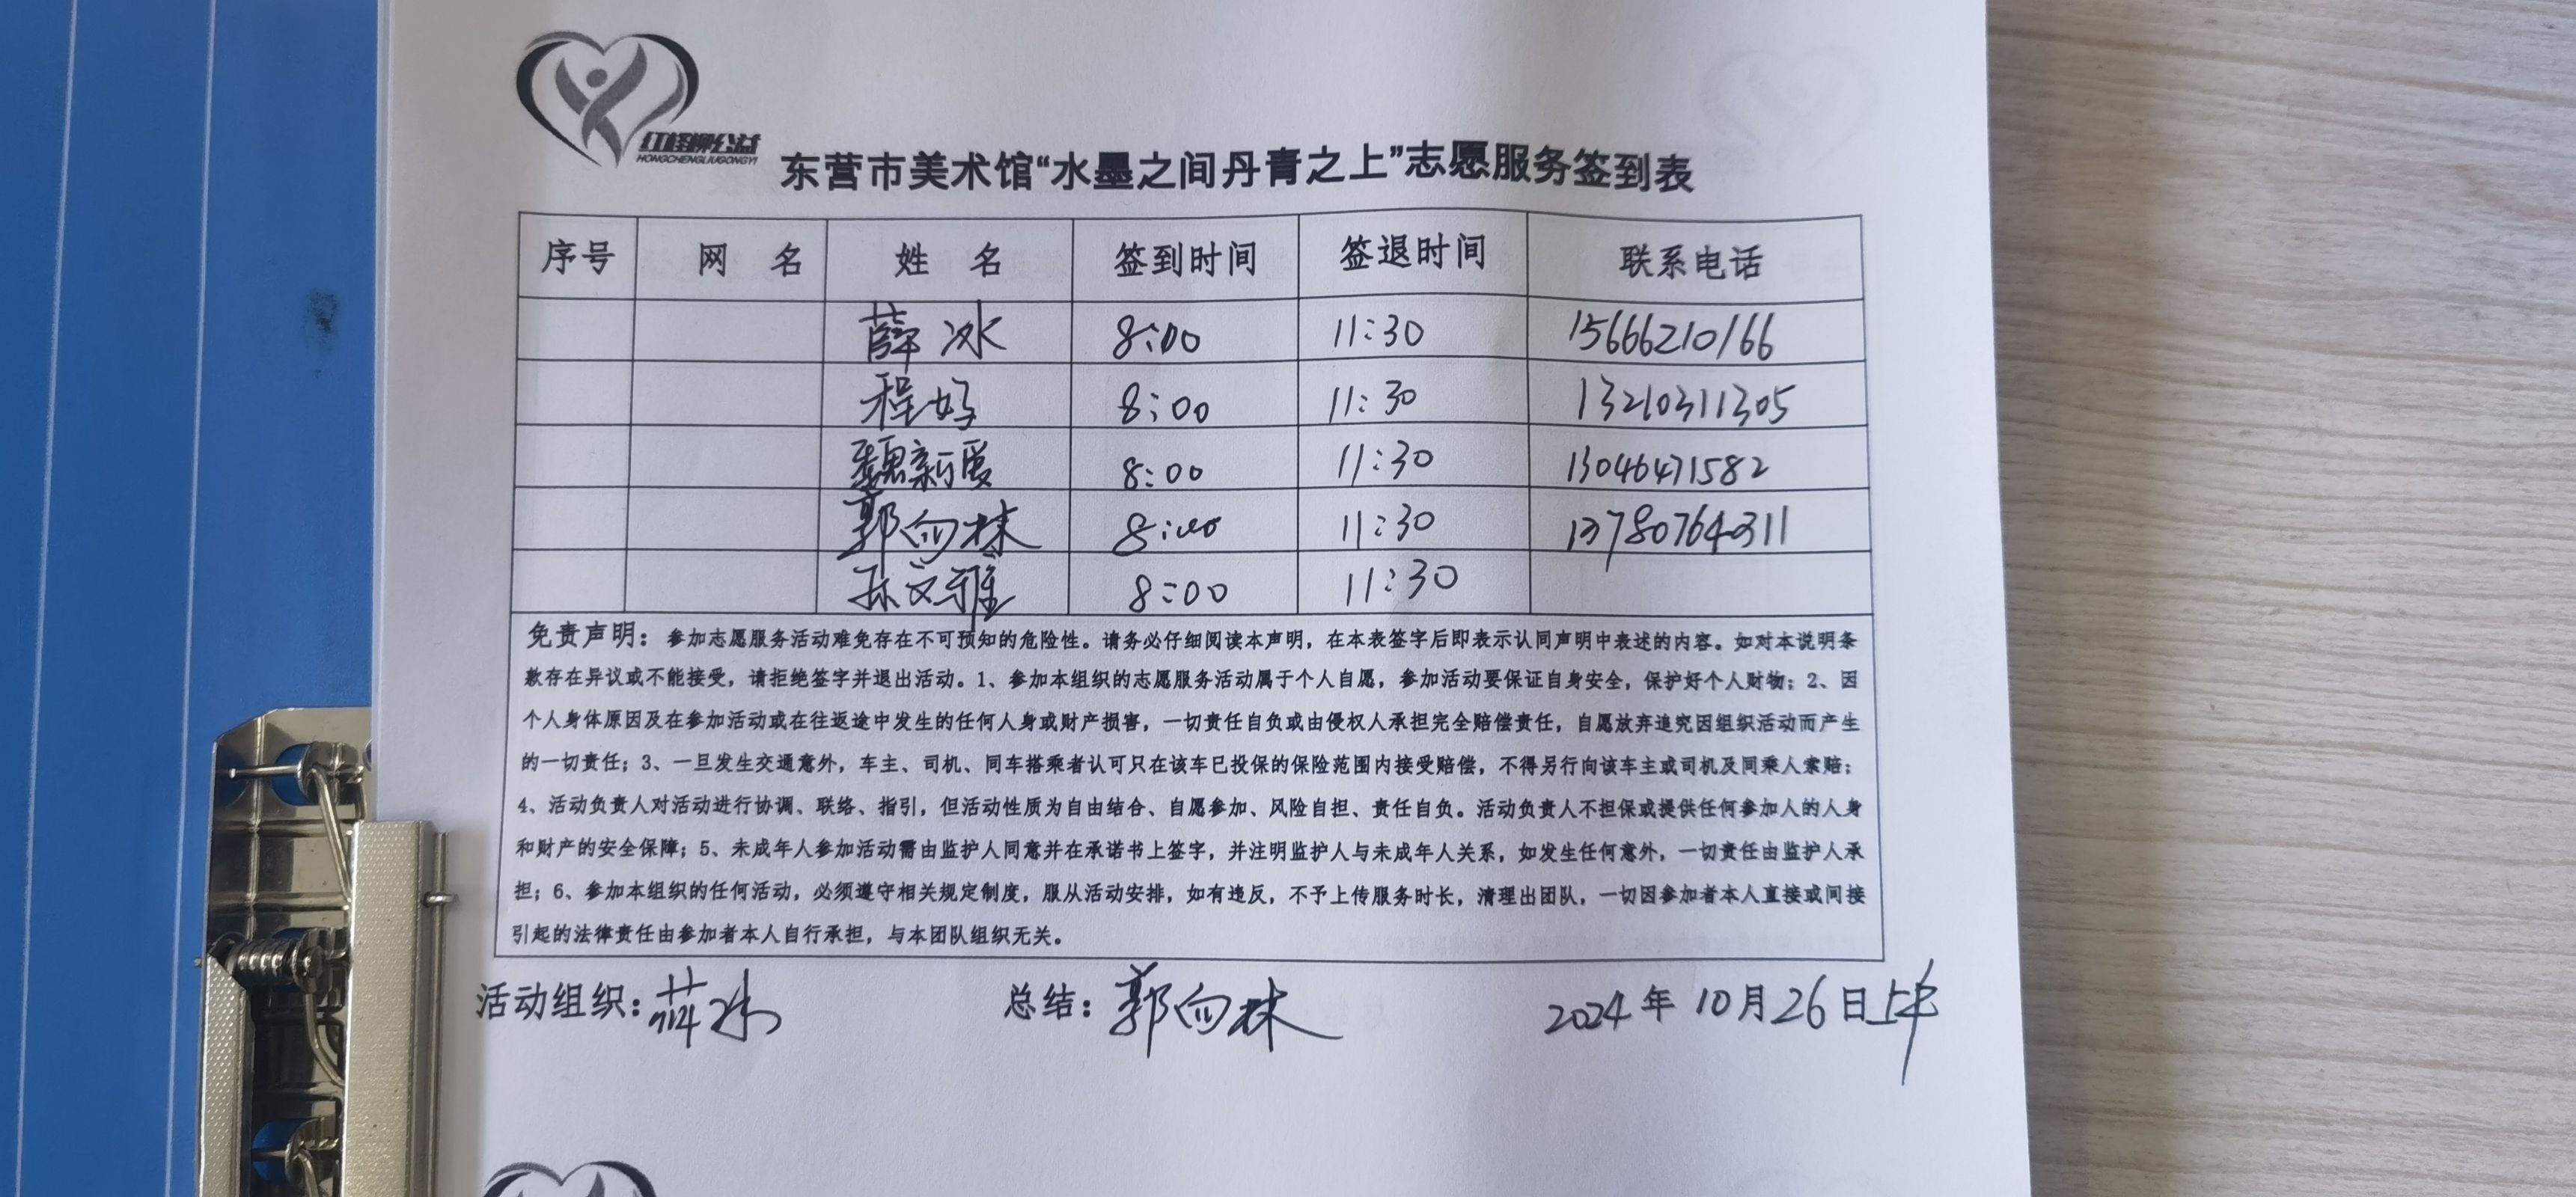 红柽柳公益
HONGCHENGLIUGONGYI
东营市美术馆“水墨之间丹青之上”志愿服务签到表
序号 网 名 姓 名 签到时间 签退时间 联系电话
薛冰 8:00 11:30 15666210166
程好 8:00 11:30 13210311305
魏新爱 8:00 11:30 13046471582
郭向林 8:00 11:30 13780764311
孙文雅 8:00 11:30
免责声明：参加志愿服务活动难免存在不可预知的危险性。请务必仔细阅读本声明，在本表签字后即表示认同声明中表述的内容。如对本说明条
款存在异议或不能接受，请拒绝签字并退出活动。1、参加本组织的志愿服务活动属于个人自愿，参加活动要保证自身安全，保护好个人财物；2、因
个人身体原因及在参加活动或在往返途中发生的任何人身或财产损害，一切责任自负或由侵权人承担完全赔偿责任，自愿放弃追究因组织活动而产生
的一切责任；3、一旦发生交通意外，车主、司机、同车搭乘者认可只在该车已投保的保险范围内接受赔偿，不得另行向该车主或司机及同乘人索赔；
4、活动负责人对活动进行协调、联络、指引，但活动性质为自由结合、自愿参加、风险自担、责任自负。活动负责人不担保或提供任何参加人的人身
和财产的安全保障；5、未成年人参加活动需由监护人同意并在承诺书上签字，并注明监护人与未成年人关系，如发生任何意外，一切责任由监护人承
担；6、参加本组织的任何活动，必须遵守相关规定制度，服从活动安排，如有违反，不予上传服务时长，清理出团队，一切因参加者本人直接或间接
引起的法律责任由参加者本人自行承担，与本团队组织无关。
活动组织：薛冰 总结：郭向林 2024年10月26日上午